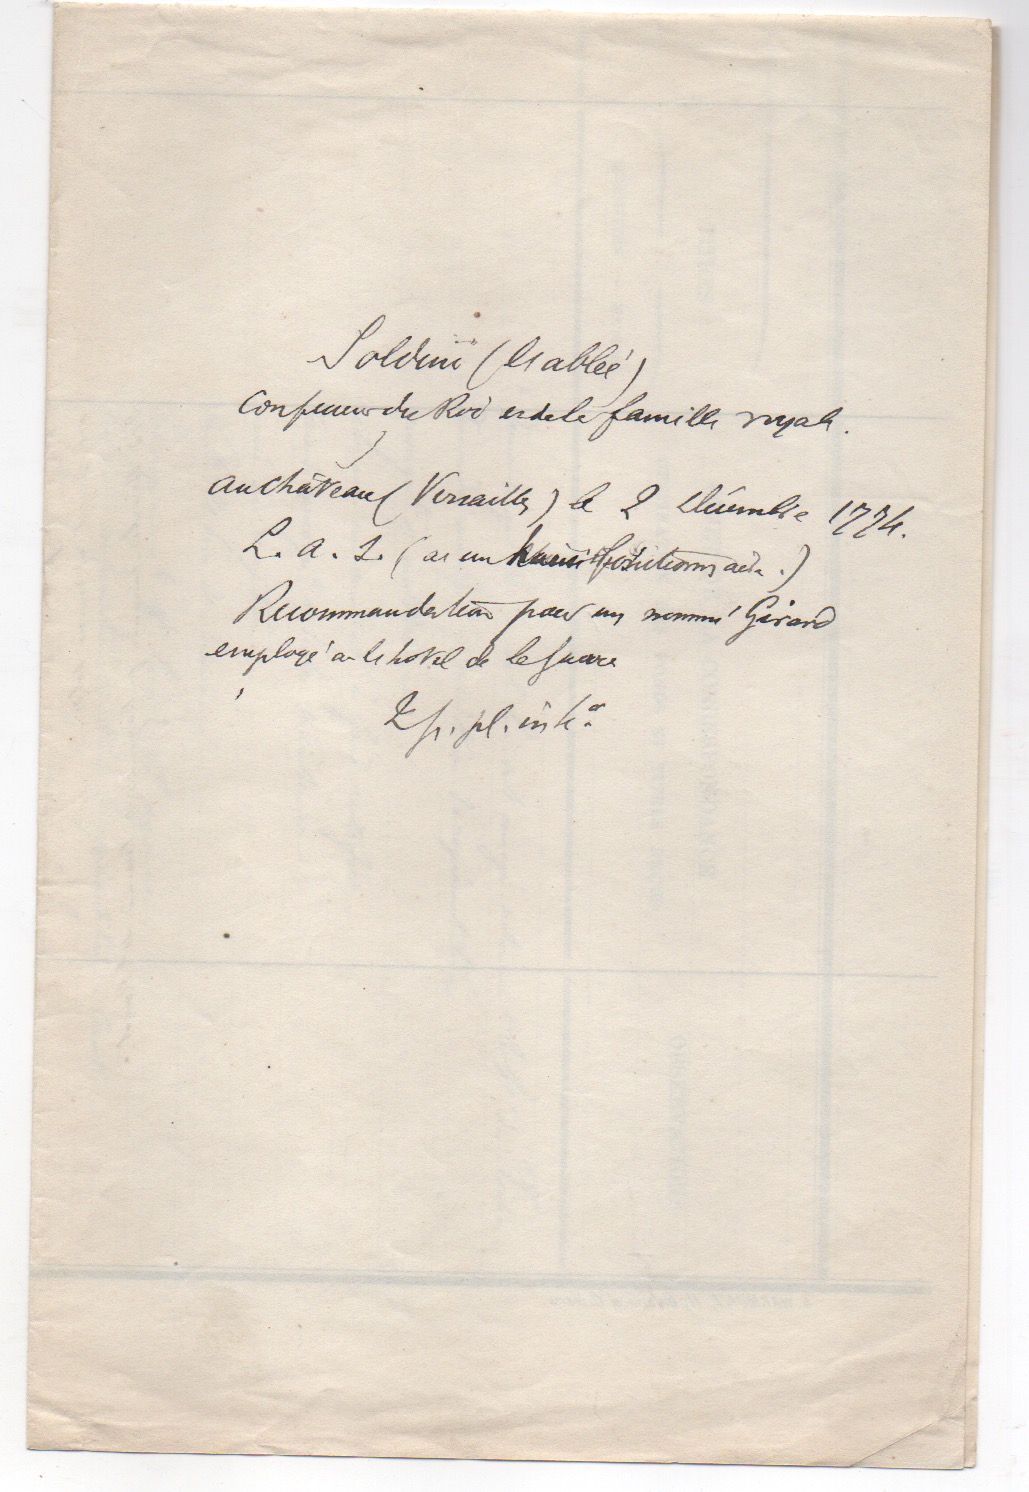 Soldini (l'abbé)
confesseur du Roi et de la famille royale.
au château (Versailles) le 2 décembre 1774.
L. a. s. (à un haut fonctionnaire.)
Recommandation pour un nommé Girard
employé à l'hôtel de la guerre
2 p. pl. in 4º